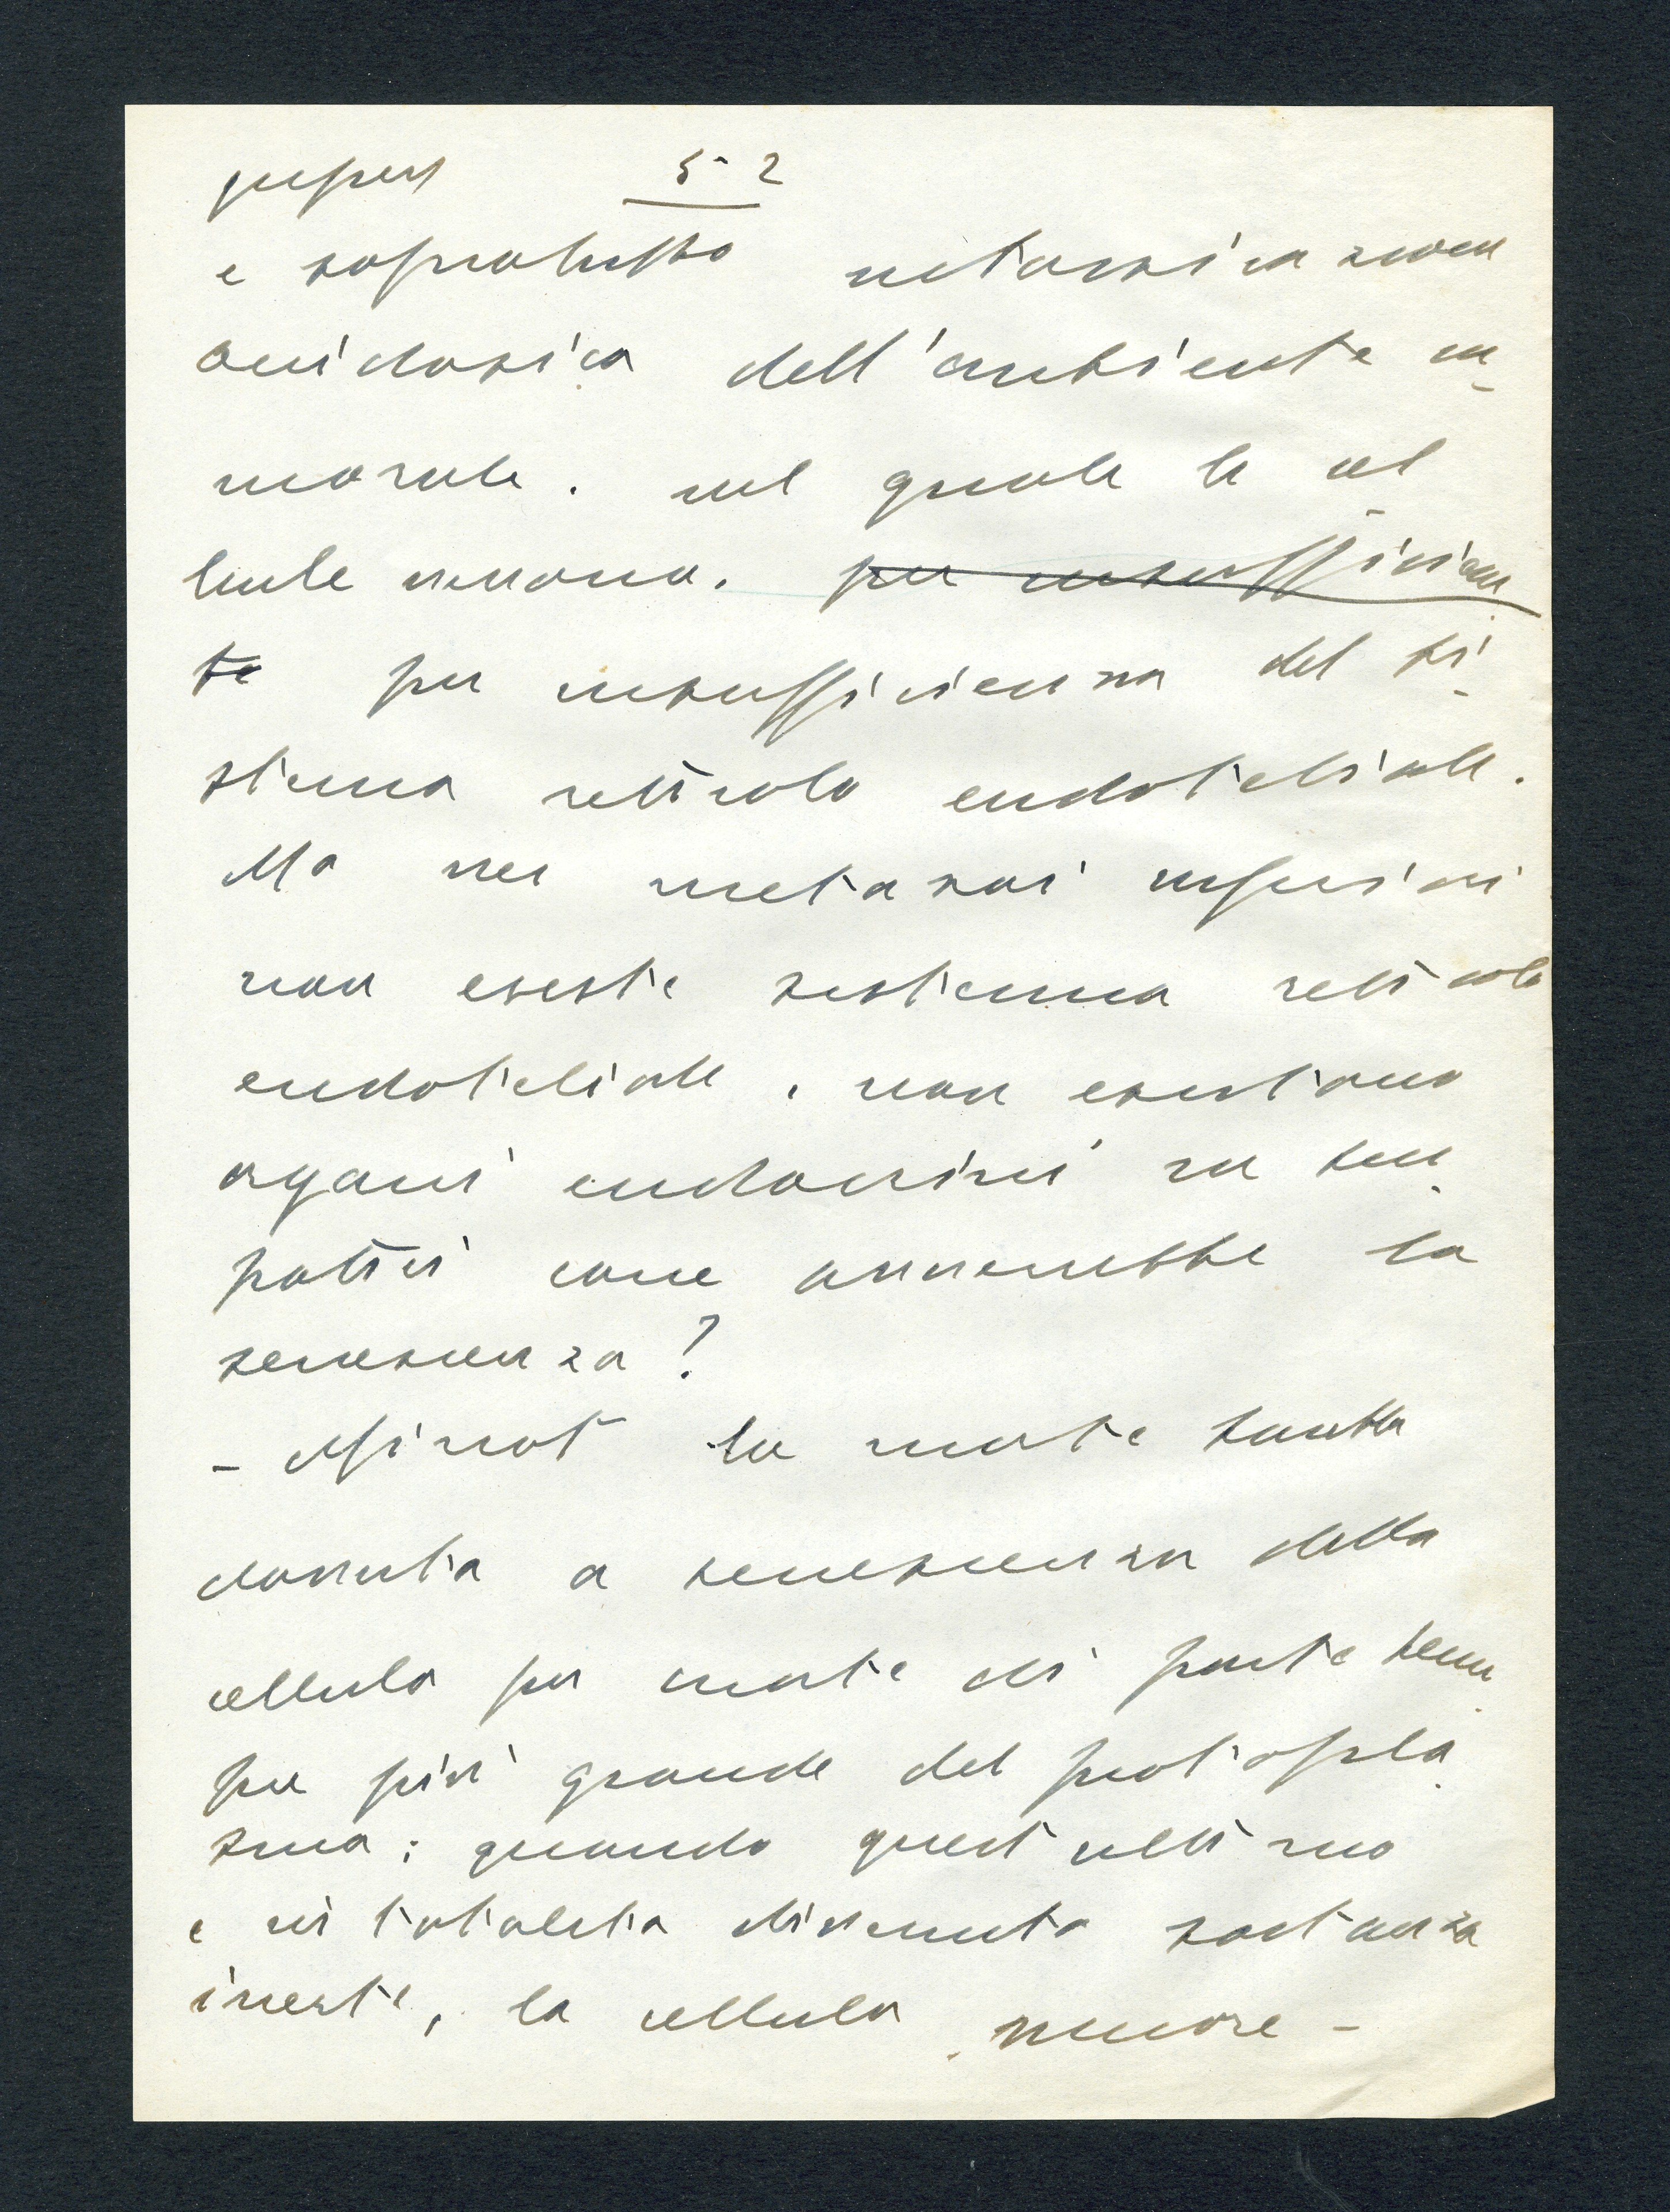 5 2
e sopratutto intossicazione
acidosica dell'ambiente u-
morale. nel quale le cel-
lule vivono. per insufficien
te per insufficienza del si-
stema reticolo endoteliale.
Ma nei metazoi inferiori
non esiste sistema reticolo
endoteliale, non esistono
organi endocrini in sen-
come avverrebbe la
senescenza?
- Minot la morte sarebbe
dovuta a senescenza della
cellula per morte di parte sem-
pre più grande del protopla-
sma: quando quest'ultimo
è in totalità divenuto sostanza
inerte, la cellula muore -